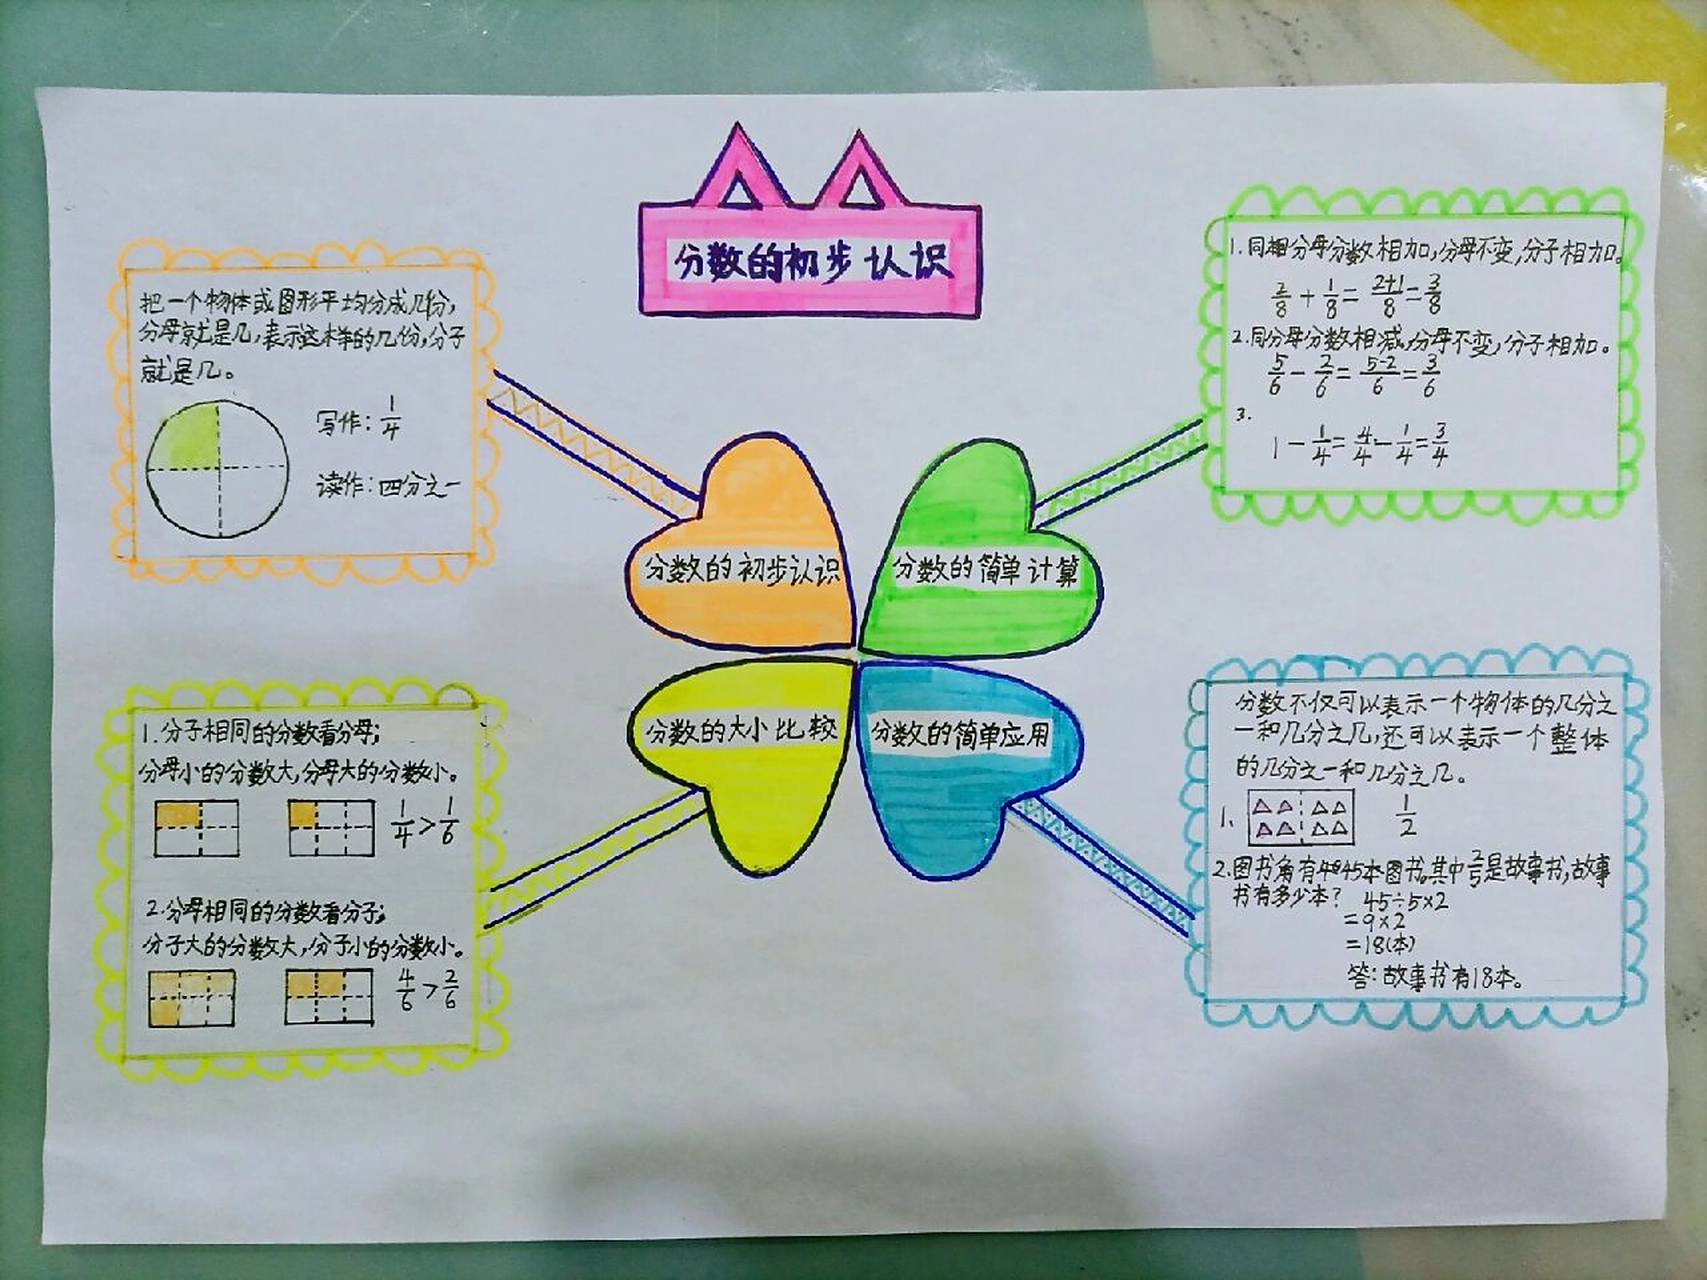 分数的初步认识
把一个物体或图形平均分成几份,
分母就是几,表示这样的几份,分子
就是几。
写作: 1/4
读作: 四分之一
分数的初步认识
分数的简单计算
1.同分母分数相加,分母不变,分子相加。
2/8 + 1/8 = 2+1/8 = 3/8
2.同分母分数相减,分母不变,分子相加。
5/6 - 2/6 = 5-2/6 = 3/6
3.
1 - 1/4 = 4/4 - 1/4 = 3/4
分数的大小比较
1.分子相同的分数看分母;
分母小的分数大,分母大的分数小。
1/4 > 1/6
2.分母相同的分数看分子;
分子大的分数大,分子小的分数小。
4/6 > 2/6
分数的简单应用
分数不仅可以表示一个物体的几分之
一和几分之几,还可以表示一个整体
的几分之一和几分之几。
1. 1/2
2.图书角有45本图书,其中2/5是故事书,故事
书有多少本? 45÷5×2
=9×2
=18(本)
答:故事书有18本。